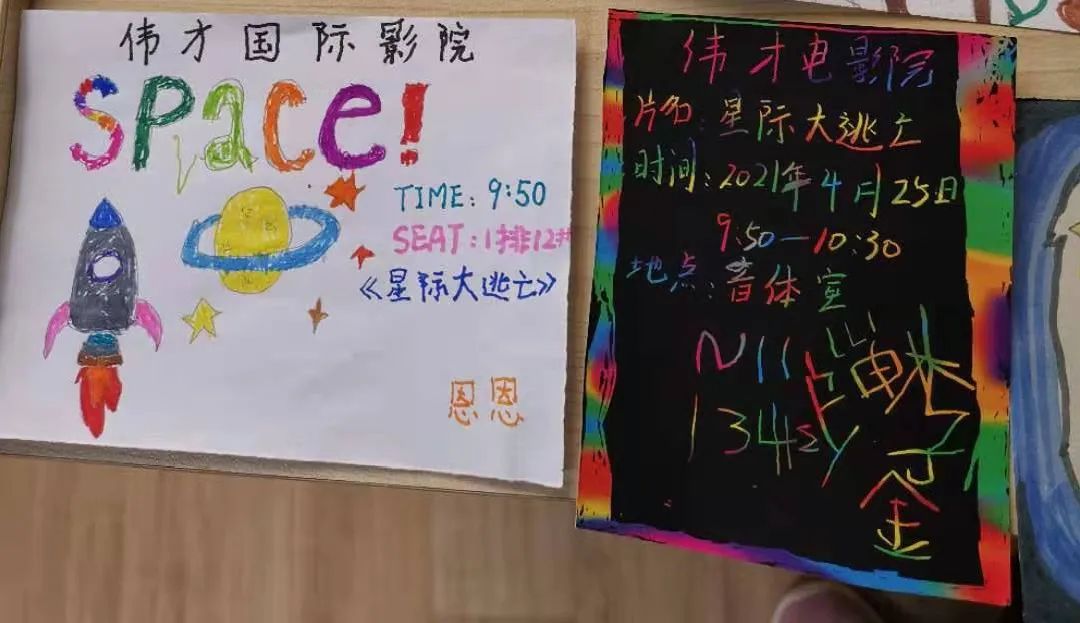 伟才国际影院
Space!
TIME: 9:50
SEAT: 1排12#
《星际大逃亡》
恩恩
伟才电影院
片名: 星际大逃亡
时间: 2021年4月25日
9:50—10:30
地点: 音体室
N11
134
金